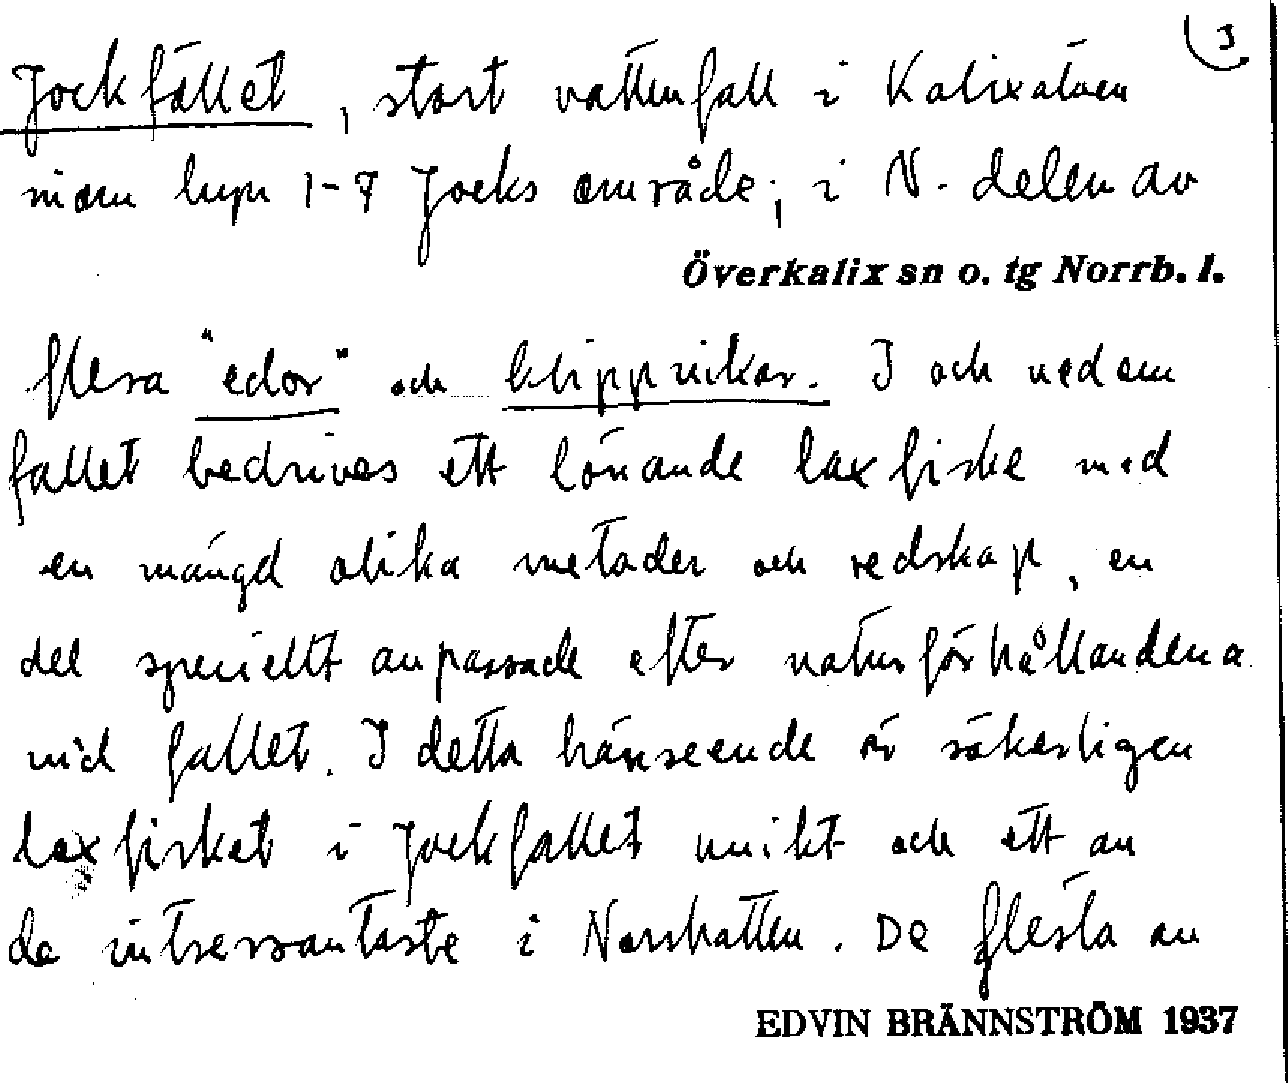 J
Jockfallet, stort vattenfall i Kalixälven
inom hmn 1-7 Jocks område; i N. delen av
Överkalix sn o. tg Norrb. l.
flera "edor" och klippvikar. I och nedom
fallet bedrives ett lönande laxfiske med
en mängd olika metoder och redskap, en
del speciellt anpassade efter naturförhållandena
vid fallet. I detta hänseende är säkerligen
laxfisket i Jockfallet unikt och ett av
de intressantaste i Norrbotten. De flesta av
EDVIN BRÄNNSTRÖM 1937